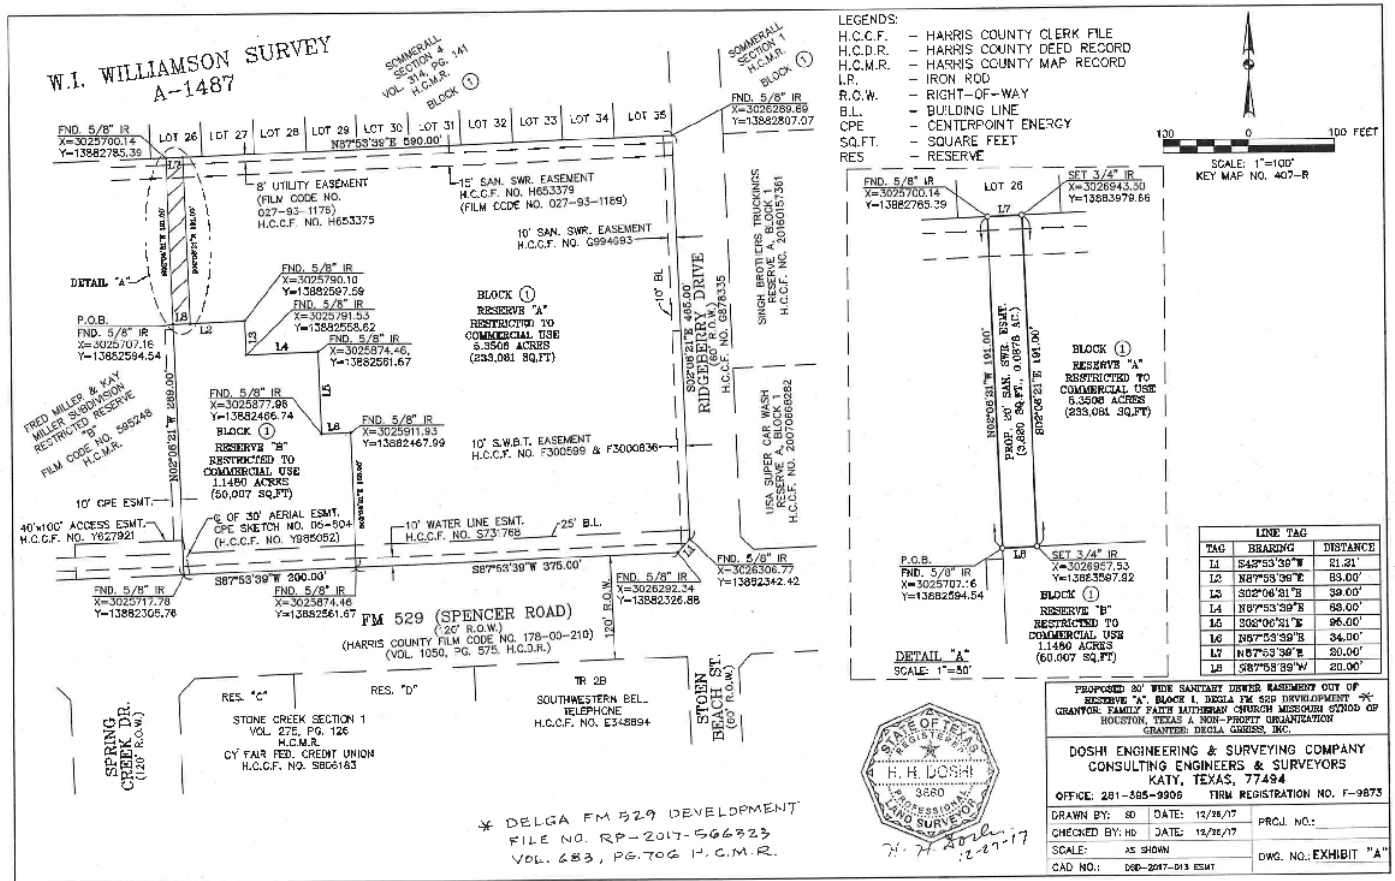 W.I. WILLIAMSON SURVEY
A-1487
SOMMERALL
SECTION 4
VOL. 314, PG. 141
H.C.M.R.
BLOCK 1
SOMMERALL
SECTION 1
H.C.M.R.
BLOCK 1
FND. 5/8" IR
X=3025700.14
Y=13882785.39
LOT 26
LOT 27
LOT 28
LOT 29
LOT 30
LOT 31
LOT 32
LOT 33
LOT 34
LOT 35
N87°53'39"E 590.00'
FND. 5/8" IR
X=3026289.69
Y=13882807.07
L7
8' UTILITY EASEMENT
(FILM CODE NO.
027-93-1176)
H.C.C.F. NO. H653375
15' SAN. SWR. EASEMENT
H.C.C.F. NO. H653379
(FILM CODE NO. 027-93-1189)
10' SAN. SWR. EASEMENT
H.C.C.F. NO. G994693
DETAIL "A"
P.O.B.
FND. 5/8" IR
X=3025707.16
Y=13882594.54
L8
L2
FND. 5/8" IR
X=3025790.10
Y=13882597.59
FND. 5/8" IR
X=3025791.53
Y=13882558.62
L3
L4
FND. 5/8" IR
X=3025874.46,
Y=13882561.67
L5
FND. 5/8" IR
X=3025877.98
Y=13882466.74
L6
FND. 5/8" IR
X=3025911.93
Y=13882467.99
BLOCK 1
RESERVE "A"
RESTRICTED TO
COMMERCIAL USE
5.3508 ACRES
(233,081 SQ.FT)
BLOCK 1
RESERVE "B"
RESTRICTED TO
COMMERCIAL USE
1.1480 ACRES
(50,007 SQ.FT)
FRED MILLER & KAY
MILLER SUBDIVISION
RESTRICTED RESERVE
"B"
FILM CODE NO. 595248
H.C.M.R.
N02°06'21"W 289.00'
10' BL
S02°06'21"E 465.00'
RIDGEBERRY DRIVE
(60' R.O.W.)
H.C.C.F. NO. G878335
SINGH BROTHERS TRUCKINGS
RESERVE A, BLOCK 1
H.C.C.F. NO. 20160157361
USA SUPER CAR WASH
RESERVE A, BLOCK 1
H.C.C.F. NO. 20070668282
10' S.W.B.T. EASEMENT
H.C.C.F. NO. F300599 & F3000836
10' CPE ESMT.
40'x100' ACCESS ESMT.
H.C.C.F. NO. Y627921
OF 30' AERIAL ESMT.
CPE SKETCH NO. 05-804
(H.C.C.F. NO. Y985052)
10' WATER LINE ESMT.
H.C.C.F. NO. S731768
25' B.L.
L1
S87°53'39"W 200.00'
S87°53'39"W 375.00'
FND. 5/8" IR
X=3025717.78
Y=13882305.76
FND. 5/8" IR
X=3025874.46
Y=13882561.67
FND. 5/8" IR
X=3026292.34
Y=13882326.88
FND. 5/8" IR
X=3026306.77
Y=13882342.42
FM 529 (SPENCER ROAD)
(120' R.O.W.)
(HARRIS COUNTY FILM CODE NO. 178-00-210)
(VOL. 1050, PG. 575, H.C.D.R.)
120' R.O.W.
SPRING
CREEK DR.
(120' R.O.W.)
RES. "C"
RES. "D"
STONE CREEK SECTION 1
VOL. 275, PG. 126
H.C.M.R.
CY FAIR FED. CREDIT UNION
H.C.C.F. NO. S806183
TR 2B
SOUTHWESTERN BELL
TELEPHONE
H.C.C.F. NO. E348894
STOEN
BEACH ST.
(60' R.O.W.)
* DELGA FM 529 DEVELOPMENT
FILE NO. RP-2017-566323
VOL. 683, PG. 706 H.C.M.R.
LEGENDS:
H.C.C.F. - HARRIS COUNTY CLERK FILE
H.C.D.R. - HARRIS COUNTY DEED RECORD
H.C.M.R. - HARRIS COUNTY MAP RECORD
I.R. - IRON ROD
R.O.W. - RIGHT-OF-WAY
B.L. - BUILDING LINE
CPE - CENTERPOINT ENERGY
SQ.FT. - SQUARE FEET
RES - RESERVE
100 0 100 FEET
SCALE: 1"=100'
KEY MAP NO. 407-R
FND. 5/8" IR
X=3025700.14
Y=13882785.39
LOT 26
L7
SET 3/4" IR
X=3026943.50
Y=13883979.66
N02°06'21"W 191.00'
PROP. 20' SAN. SWR. ESMT.
(3,820 SQ.FT., 0.0876 AC.)
S02°06'21"E 191.00'
BLOCK 1
RESERVE "A"
RESTRICTED TO
COMMERCIAL USE
5.3508 ACRES
(233,081 SQ.FT)
P.O.B.
FND. 5/8" IR
X=3025707.16
Y=13882594.54
L8
SET 3/4" IR
X=3026957.53
Y=13883597.92
BLOCK 1
RESERVE "B"
RESTRICTED TO
COMMERCIAL USE
1.1480 ACRES
(50,007 SQ.FT)
DETAIL "A"
SCALE: 1"=50'
LINE TAG
TAG BEARING DISTANCE
L1 S42°53'39"W 21.21'
L2 N87°53'39"E 83.00'
L3 S02°06'21"E 39.00'
L4 N87°53'39"E 83.00'
L5 S02°06'21"E 95.00'
L6 N87°53'39"E 34.00'
L7 N87°53'39"E 20.00'
L8 S87°53'39"W 20.00'
PROPOSED 20' WIDE SANITARY SEWER EASEMENT OUT OF
RESERVE "A", BLOCK 1, DEGLA FM 529 DEVELOPMENT *
GRANTOR: FAMILY FAITH LUTHERAN CHURCH MISSOURI SYNOD OF
HOUSTON, TEXAS A NON-PROFIT ORGANIZATION
GRANTEE: DEGLA GREISS, INC.
DOSHI ENGINEERING & SURVEYING COMPANY
CONSULTING ENGINEERS & SURVEYORS
KATY, TEXAS, 77494
OFFICE: 281-395-9906 FIRM REGISTRATION NO. F-9873
DRAWN BY: SD DATE: 12/26/17
PROJ. NO.:
CHECKED BY: HD DATE: 12/26/17
SCALE: AS SHOWN
CAD NO.: DSD-2017-013 ESMT
DWG. NO.: EXHIBIT "A"
STATE OF TEXAS
REGISTERED
H. H. DOSHI
3860
PROFESSIONAL
LAND SURVEYOR
H. H. Doshi
12-27-17